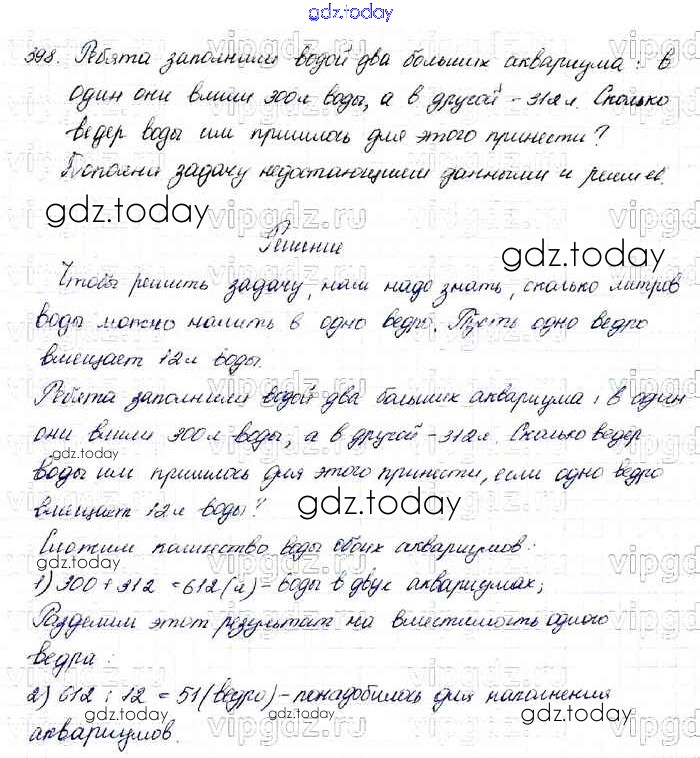 gdz.today
398. Ребята заполнили водой два больших аквариума: в
один они влили 300л воды, а в другой - 312л. Сколько
ведер воды им пришлось для этого принести?
Дополни задачу недостающими данными и реши её.
gdz.today
gdz.today
Решение
Чтобы решить задачу, нам надо знать, сколько литров
воды можно налить в одно ведро. Пусть одно ведро
вмещает 12л воды.
Ребята заполнили водой два больших аквариума: в один
они влили 300л воды, а в другой - 312л. Сколько ведер
воды им пришлось для этого принести, если одно ведро
вмещает 12л воды?
gdz.today
gdz.today
Сложим количество воды обоих аквариумов:
1) 300 + 312 = 612 (л) - воды в двух аквариумах;
Разделим этот результат на вместимость одного
ведра:
2) 612 : 12 = 51 (ведро) - понадобилось для наполнения
аквариумов.
gdz.today
gdz.today
gdz.today
vipgdz.ru